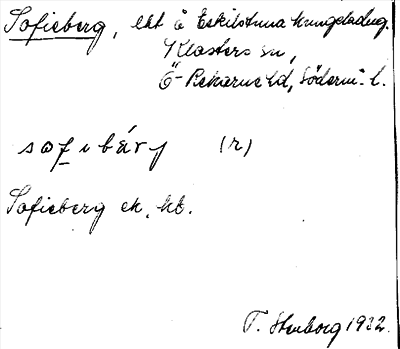 Sofieberg, lht å Eskilstuna kungsladug.
Klosters sn,
Ö-Rekarne hd, Söderm. l.
sofibárj (r)
Sofieberg ek. kb.
T. Stenborg 1932.